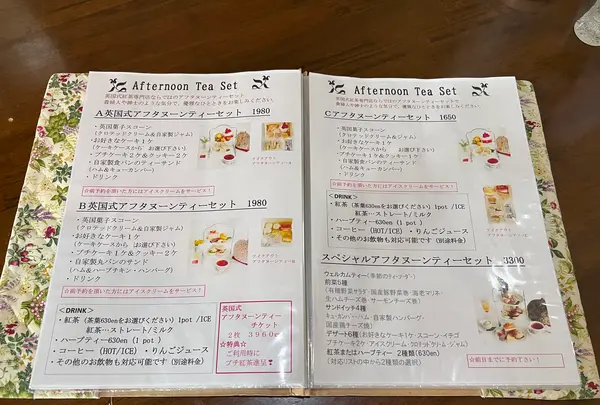 Afternoon Tea Set
英国式紅茶専門店ならではのアフタヌーンティーセット
貴婦人や紳士のような気分で、優雅なひとときをお楽しみください。
A英国式アフタヌーンティーセット 1980
・英国菓子スコーン
(クロテッドクリーム&自家製ジャム)
・お好きなケーキ1ケ
(ケーキケースから お選び下さい)
・プチケーキ2ケ&クッキー2ケ
・自家製食パンのティーサンド
(ハム&キューカンバー)
・ドリンク
☆前予約を頂いた方にはアイスクリームをサービス!
B英国式アフタヌーンティーセット 1980
・英国菓子スコーン
(クロテッドクリーム&自家製ジャム)
・お好きなケーキ1ケ
(ケーキケースから お選び下さい)
・プチケーキ2ケ&クッキー2ケ
・自家製丸パンのサンド
(ハム&ハーブチキン・ハンバーグ)
・ドリンク
☆前予約を頂いた方にはアイスクリームをサービス!
<DRINK>
・紅茶(茶葉630enをお選びください)1pot /ICE
紅茶…ストレート/ミルク
・ハーブティー630en (1 pot )
・コーヒー (HOT/ICE) ・りんごジュース
・その他のお飲物も対応可能です(別途料金)
英国式
アフタヌーンティー
チケット
2枚 3960en
☆特典☆
ご利用時に
プチ紅茶進呈❣
Afternoon Tea Set
英国式紅茶専門店ならではのアフタヌーンティーセット
貴婦人や紳士のような気分で、優雅なひとときをお楽しみください。
Cアフタヌーンティーセット 1650
・英国菓子スコーン
(クロテッドクリーム&自家製ジャム)
・お好きなケーキ1ケ
(ケーキケースから お選び下さい)
・プチケーキ1ケ&クッキー1ケ
・自家製食パンのティーサンド
(ハム&キューカンバー)
・ドリンク
☆前予約を頂いた方にはアイスクリームをサービス!
<DRINK>
・紅茶(茶葉630enをお選びください)1pot /ICE
紅茶…ストレート/ミルク
・ハーブティー630en (1 pot )
・コーヒー (HOT/ICE) ・りんごジュース
・その他のお飲物も対応可能です(別途料金)
スペシャルアフタヌーンティーセット 3300
ウェルカムティー(季節のティソーダ)
前菜5種
(有機野菜サラダ・国産豚野菜巻・海老マリネ・
生ハムチーズ巻・サーモンチーズ巻)
サンドイッチ4種
キューカンバー・ハム・自家製ハンバーグ
国産鶏チーズ焼)
デザート6種(お好きなケーキ1ケ・スコーン・イチゴ
プチケーキ2ケ・アイスクリーム・クロテッドクリーム・ジャム)
紅茶またはハーブティー 2種類(630en)
(対応リストの中から2種類の選択)
☆前日までに予約下さい!